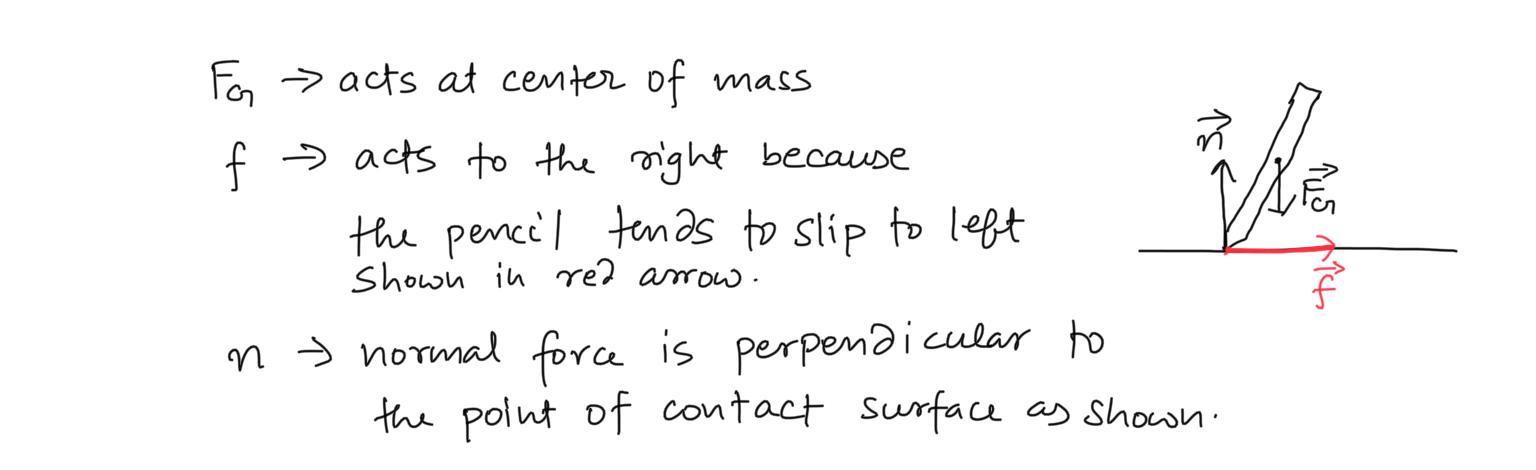 F_G → acts at center of mass
f → acts to the right because
the pencil tends to slip to left
shown in red arrow.
n → normal force is perpendicular to
the point of contact surface as shown.
n⃗
F⃗_G
f⃗